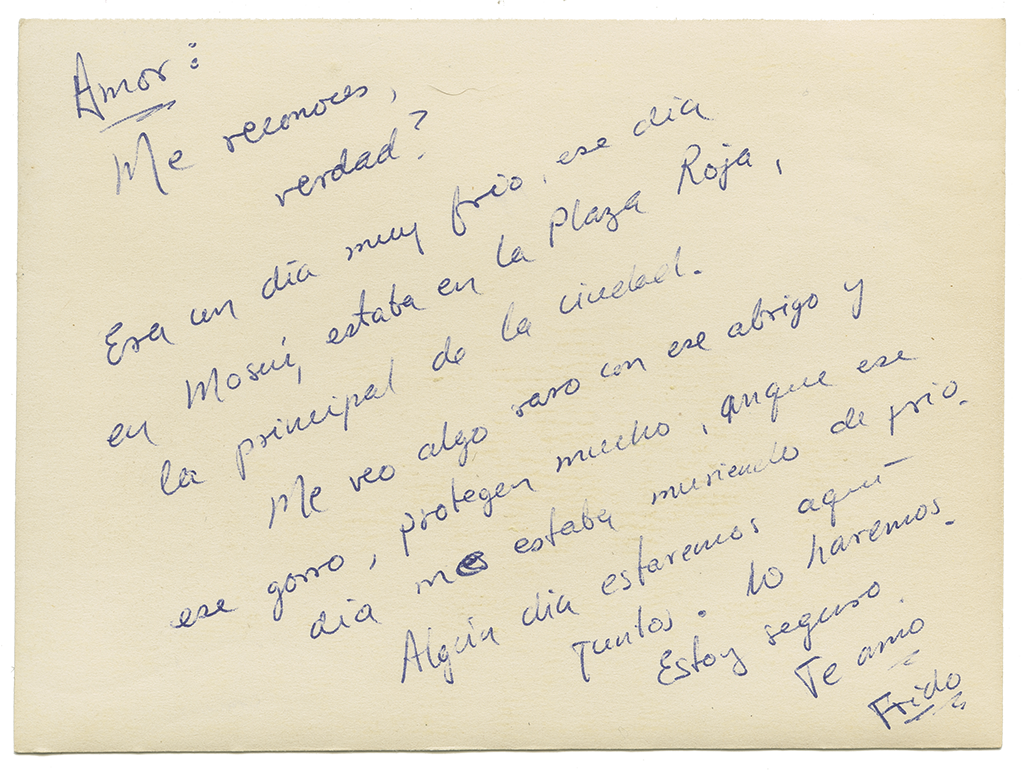 Amor:
Me reconoces,
verdad?
Era un día muy frio, ese día
en Moscú, estaba en la Plaza Roja,
la principal de la ciudad.
Me veo algo raro con ese abrigo y
ese gorro, protegen mucho, anque ese
día me estaba muriendo de frio.
Algún día estaremos aquí
juntos. Lo haremos.
Estoy seguro.
Te amo
Frido